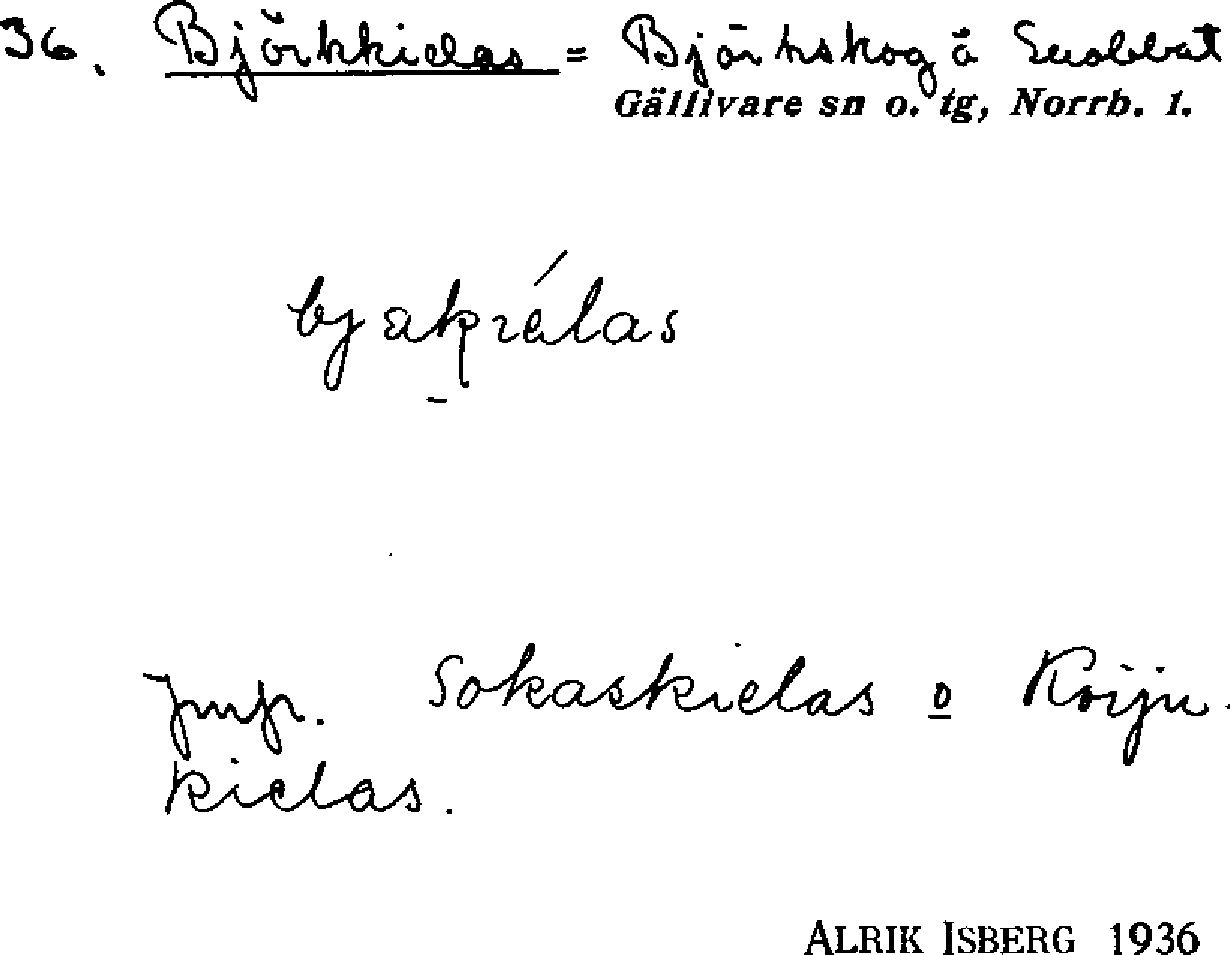 36. Björkkielas = Björkskog å Suobbat
Gällivare sn o. tg, Norrb. l.
bjakiélas
Jmfr. Sokaskielas o Koiju-
kielas.
ALRIK ISBERG 1936